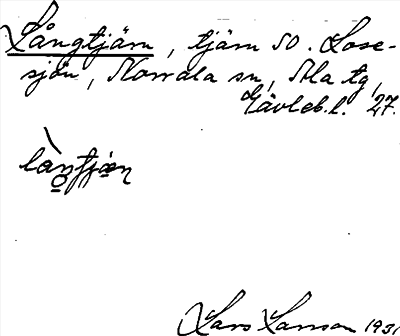 Långtjärn, tjärn SO. Lose-
sjön, Norrala sn, Ala tg,
Gävleb. l. 27.
Lars Larsson 1931